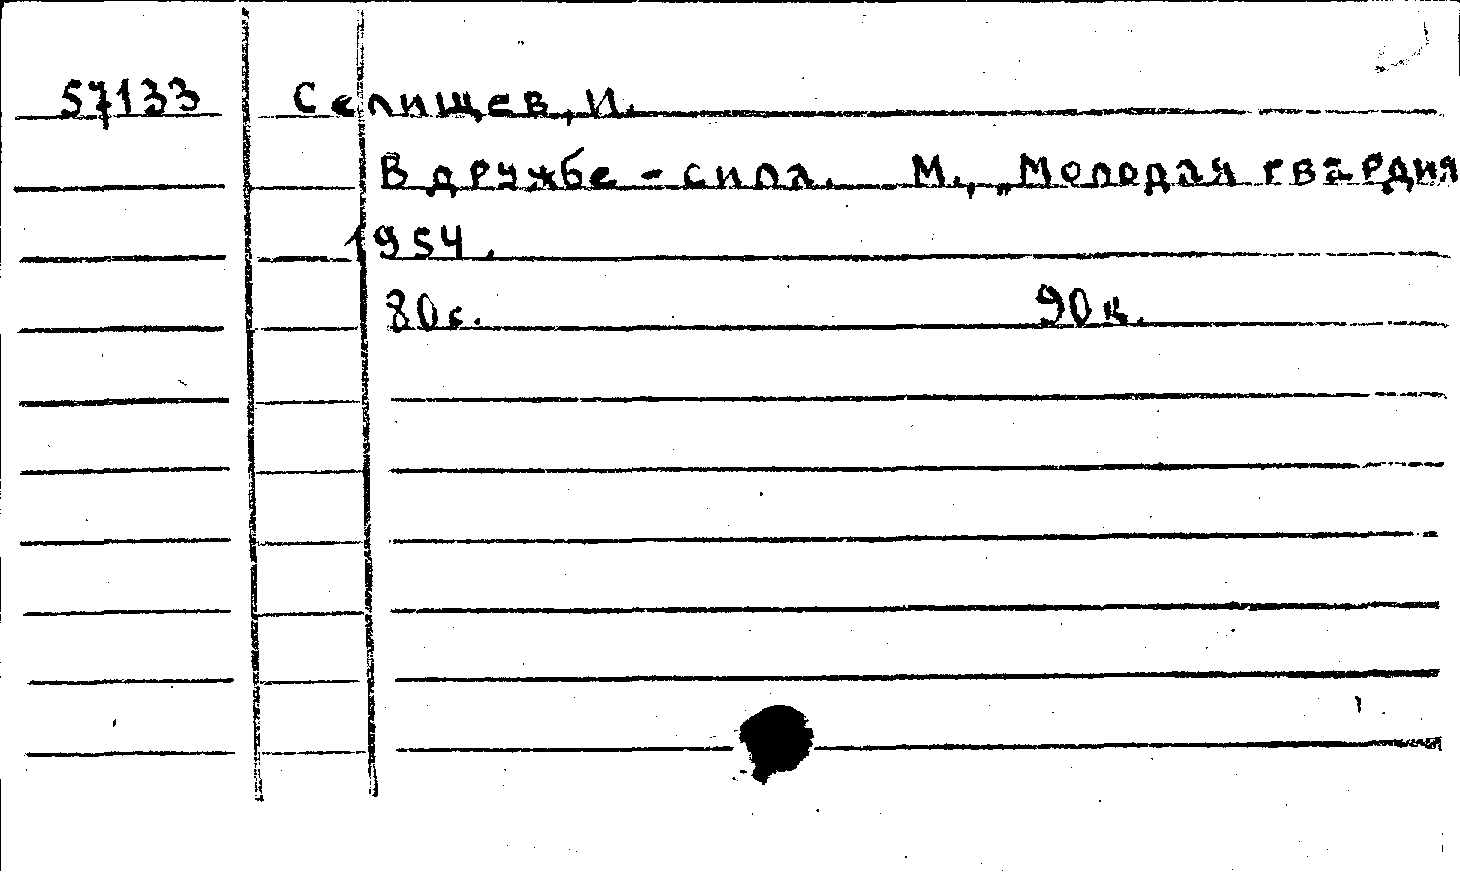 57133 Селищев, И.
В дружбе - сила. М., „Молодая гвардия
1954.
80 с. 90 к.